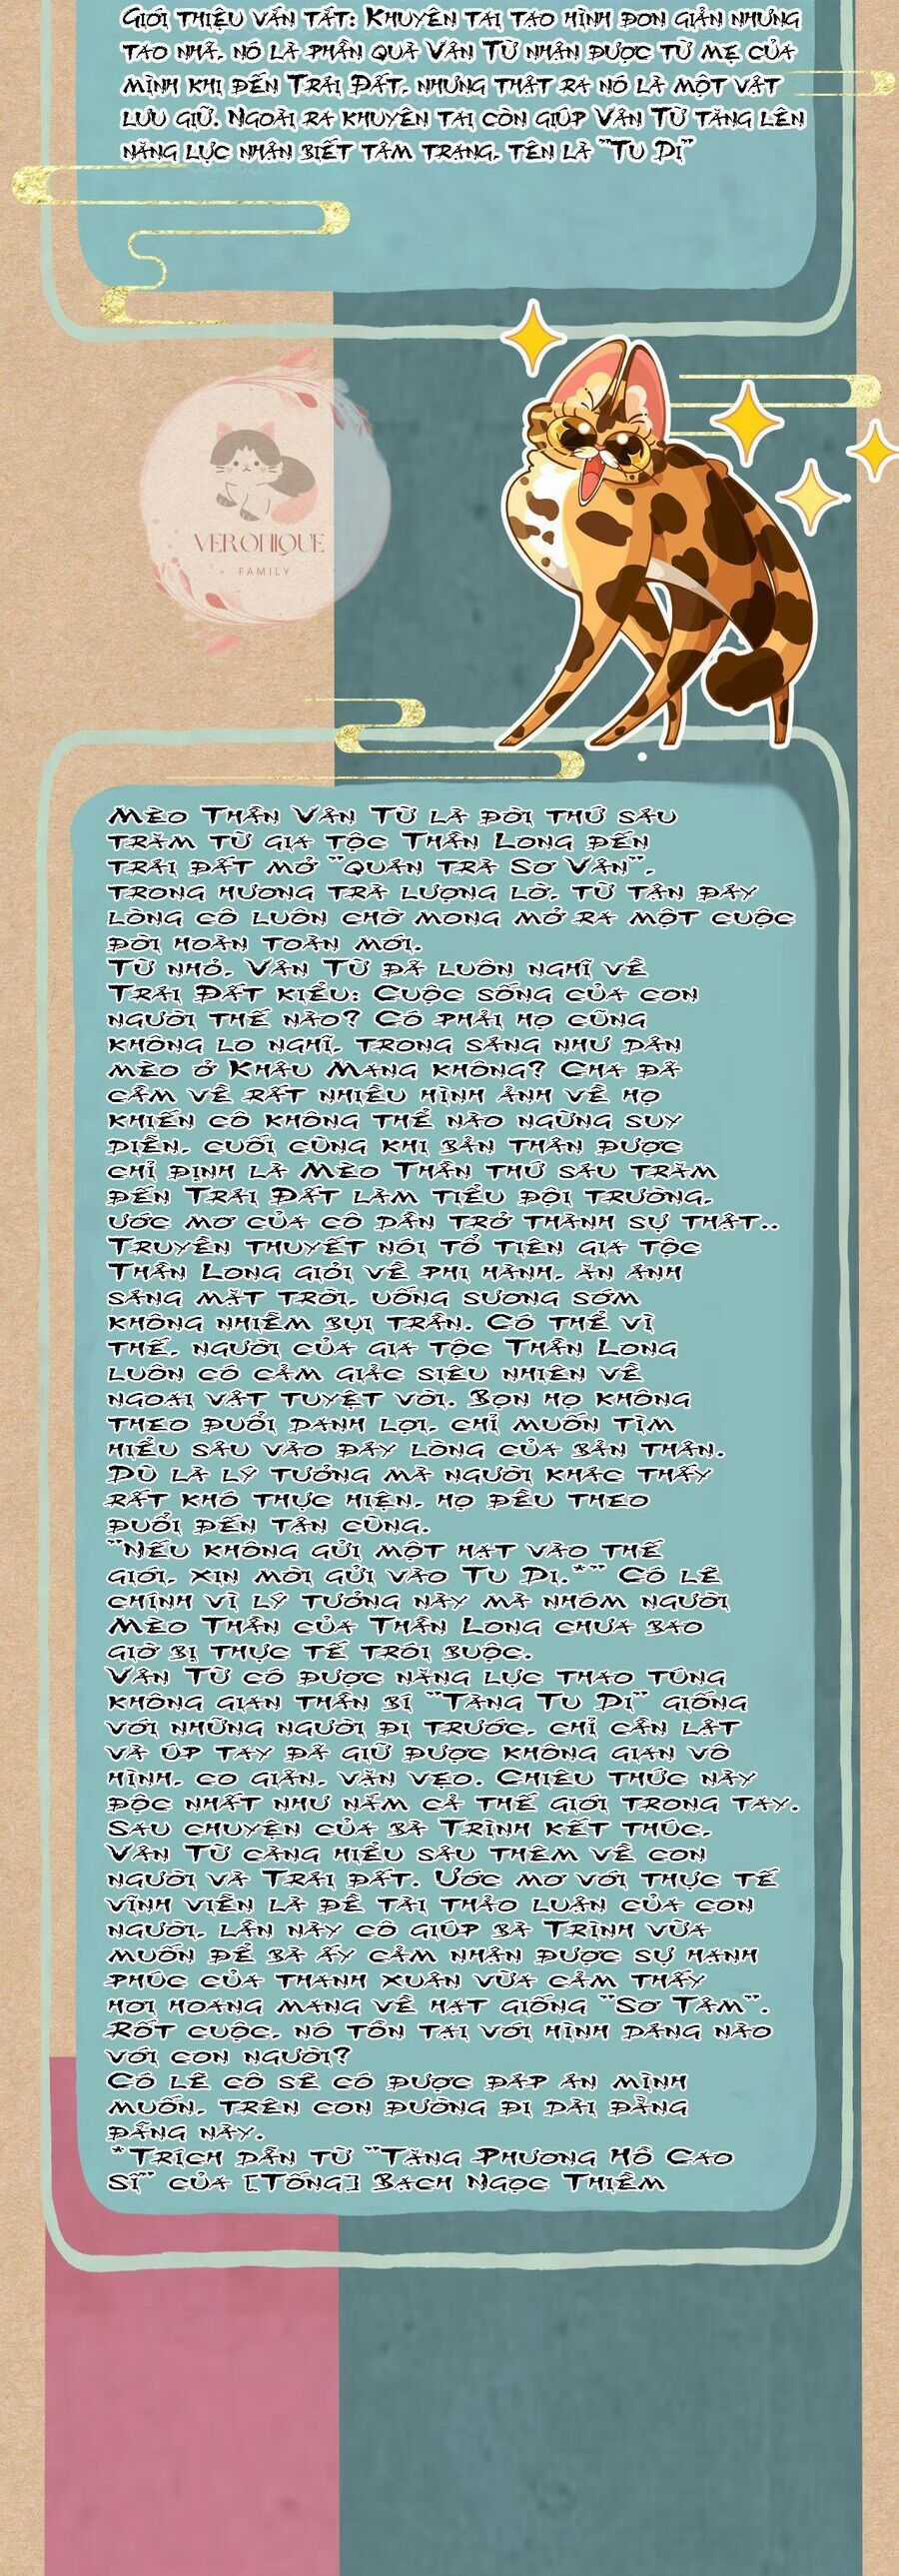 Giới thiệu vắn tắt: Khuyên tai tạo hình đơn giản nhưng
tao nhã, nó là phần quà Vân Từ nhận được từ mẹ của
mình khi đến Trái Đất, nhưng thật ra nó là một vật
lưu giữ. Ngoài ra khuyên tai còn giúp Vân Từ tăng lên
năng lực nhận biết tâm trạng, tên là "Tu Di"
VERONIQUE
FAMILY
Mèo Thần Vân Từ là đời thứ sáu
trăm từ gia tộc Thần Long đến
trái đất mở "quán trà Sơ Vân",
trong hương trà lượng lờ, từ tận đáy
lòng cô luôn chờ mong mở ra một cuộc
đời hoàn toàn mới.
Từ nhỏ, Vân Từ đã luôn nghĩ về
Trái Đất kiểu: Cuộc sống của con
người thế nào? Có phải họ cũng
không lo nghĩ, trong sáng như dân
mèo ở Khâu Mang không? Cha đã
cầm về rất nhiều hình ảnh về họ
khiến cô không thể nào ngừng suy
diễn, cuối cùng khi bản thân được
chỉ định là Mèo Thần thứ sáu trăm
đến Trái Đất làm tiểu đội trưởng,
ước mơ của cô dần trở thành sự thật..
Truyền thuyết nói tổ tiên gia tộc
Thần Long giỏi về phi hành, ăn ánh
sáng mặt trời, uống sương sớm
không nhiễm bụi trần. Có thể vì
thế, người của gia tộc Thần Long
luôn có cảm giác siêu nhiên về
ngoại vật tuyệt vời. Bọn họ không
theo đuổi danh lợi, chỉ muốn tìm
hiểu sâu vào đáy lòng của bản thân.
Dù là lý tưởng mà người khác thấy
rất khó thực hiện, họ đều theo
đuổi đến tận cùng.
"Nếu không gửi một hạt vào thế
giới, xin mời gửi vào Tu Di.*" Có lẽ
chính vì lý tưởng này mà nhóm người
Mèo Thần của Thần Long chưa bao
giờ bị thực tế trói buộc.
Vân Từ có được năng lực thao túng
không gian thần bí "Tàng Tu Di" giống
với những người đi trước, chỉ cần lật
và úp tay đã giữ được không gian vô
hình, co giãn, vặn vẹo. Chiêu thức này
độc nhất như nắm cả thế giới trong tay.
Sau chuyện của bà Trình kết thúc,
Vân Từ càng hiểu sâu thêm về con
người và Trái đất. Ước mơ với thực tế
vĩnh viễn là đề tài thảo luận của con
người, lần này cô giúp bà Trình vừa
muốn để bà ấy cảm nhận được sự hạnh
phúc của thanh xuân vừa cảm thấy
hơi hoang mang về hạt giống "Sơ Tâm".
Rốt cuộc, nó tồn tại với hình dáng nào
với con người?
Có lẽ cô sẽ có được đáp án mình
muốn, trên con đường đi dài đằng
đẵng này.
*Trích dẫn từ "Tặng Phương Hồ Cao
Sĩ" của [Tống] Bạch Ngọc Thiềm